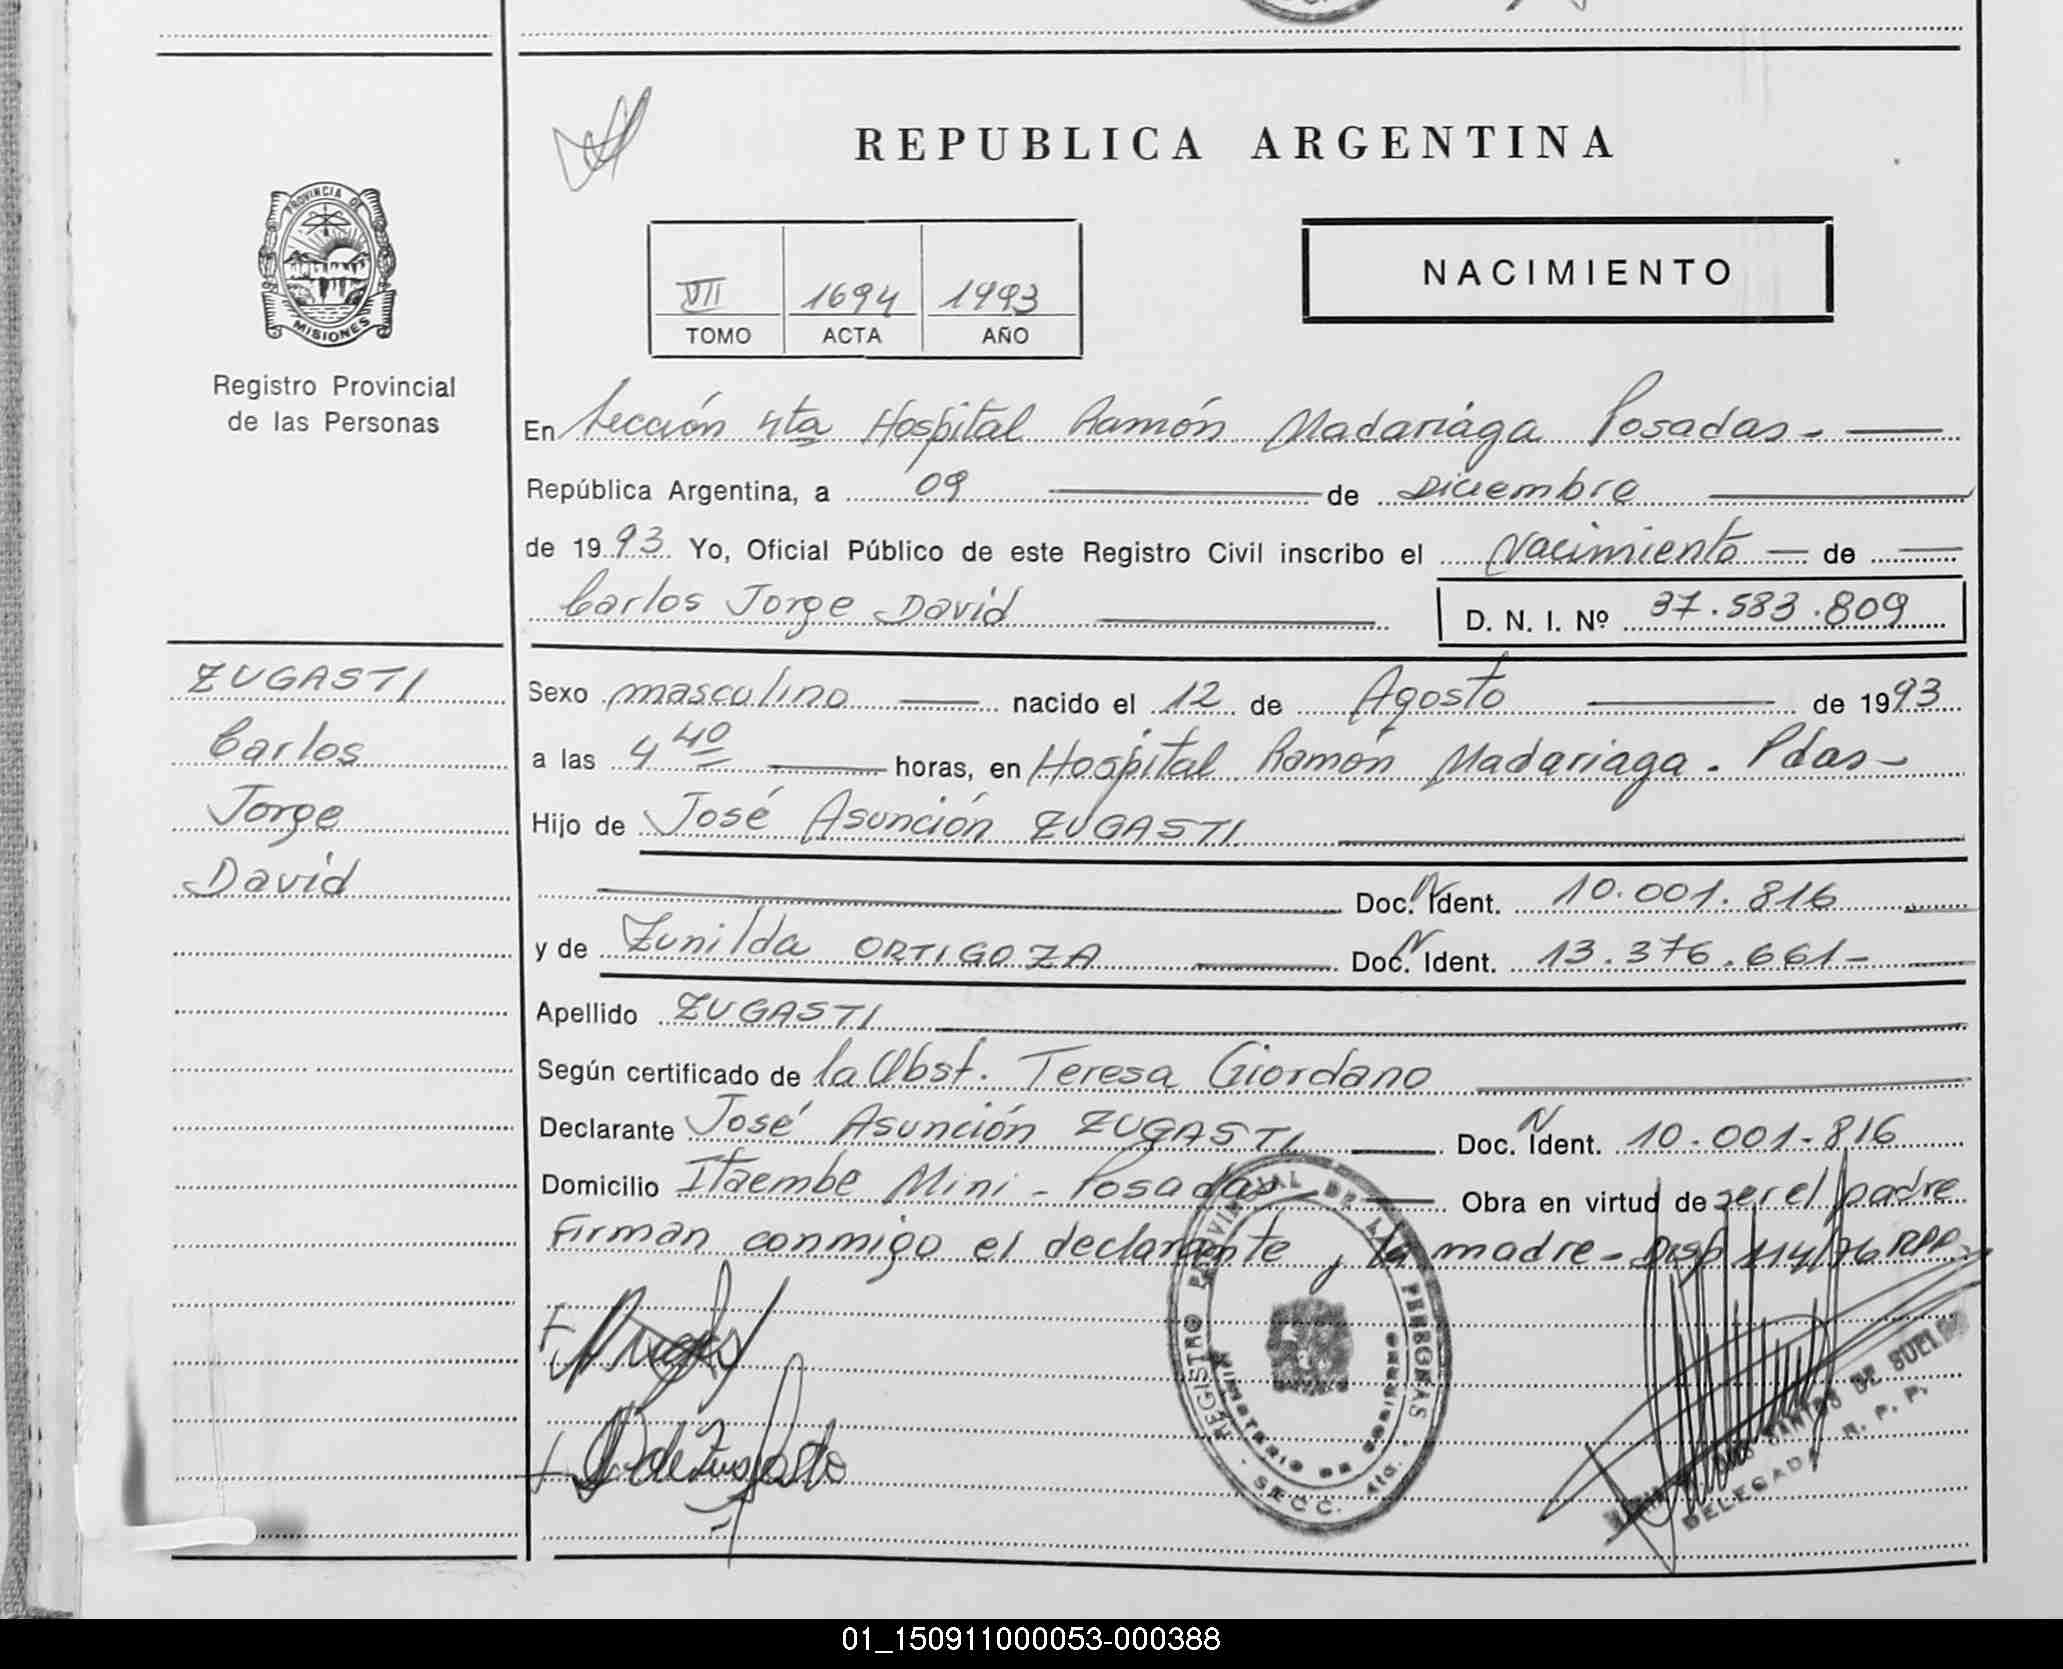 REPUBLICA ARGENTINA
PROVINCIA DE
MISIONES
Registro Provincial
de las Personas
VII 1694 1993
TOMO ACTA AÑO
NACIMIENTO
En Sección 4ta Hospital Ramón Madariaga Posadas.-
República Argentina, a 09 de Diciembre
de 1993 Yo, Oficial Público de este Registro Civil inscribo el Nacimiento de
Carlos Jorge David D. N. I. Nº 37.583.809
ZUGASTI
Carlos
Jorge
David
Sexo masculino nacido el 12 de Agosto de 1993
a las 4 40 horas, en Hospital Ramón Madariaga. Pdas-
Hijo de José Asunción ZUGASTI
Doc. N Ident. 10.001.816
y de Zunilda ORTIGOZA Doc. N Ident. 13.376.661-
Apellido ZUGASTI
Según certificado de la Obst. Teresa Giordano
Declarante José Asunción ZUGASTI Doc. N Ident. 10.001.816
Domicilio Itaembe Mini - Posadas Obra en virtud de ser el padre
Firman conmigo el declarante y la madre- Disp 114/76 RPP
REGISTRO PROVINCIAL DE LAS PERSONAS
MINISTERIO DE GOBIERNO
- SECC. 4ta. -
DE SUELDO
DELEGADA R. P. P.
01_150911000053-000388